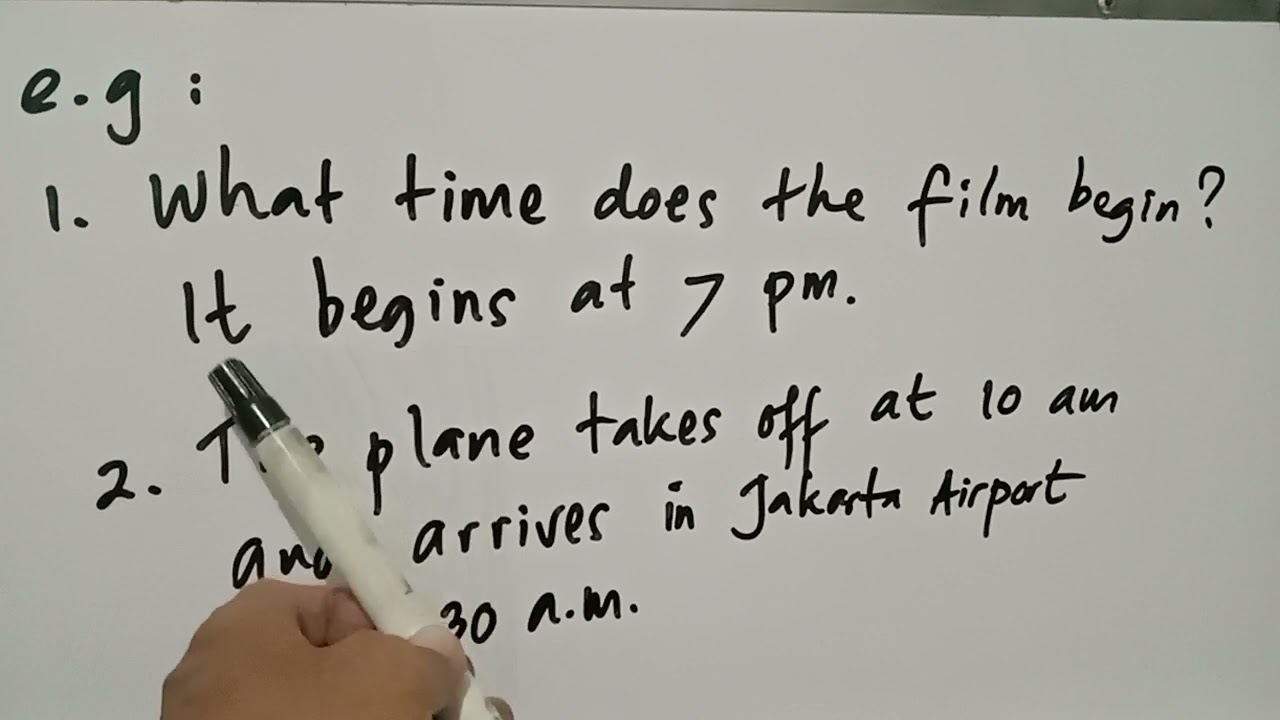 e.g :
1. What time does the film begin?
It begins at 7 pm.
2. plane takes off at 10 am
and arrives in Jakarta Airport
30 a.m.